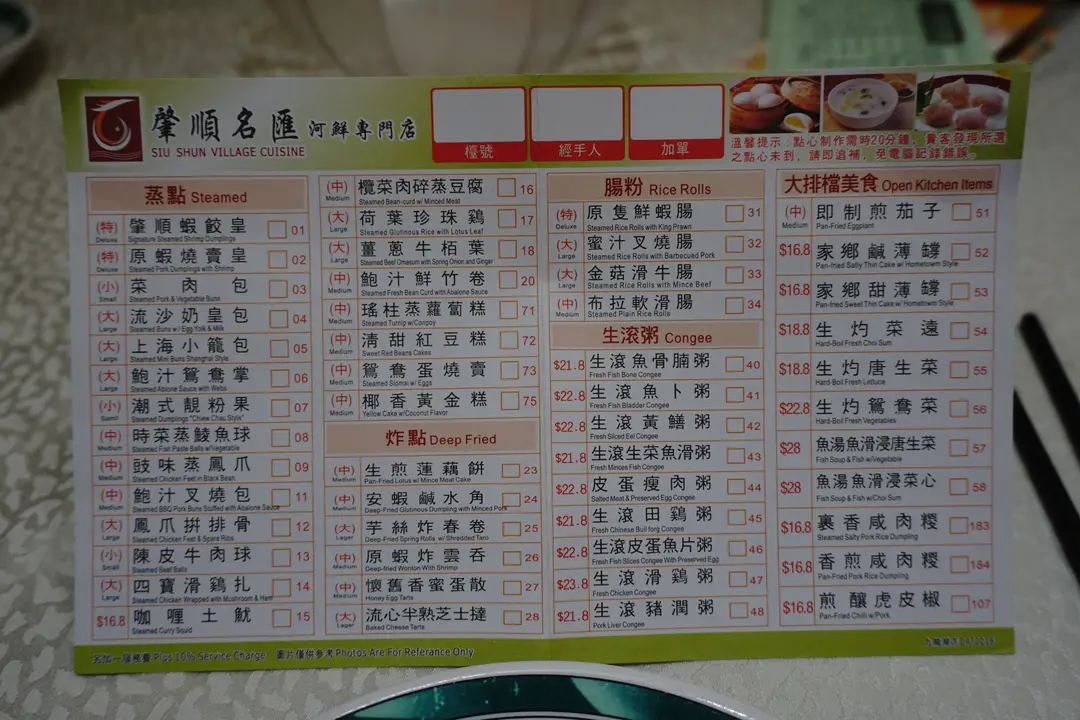 肇順名匯 河鮮專門店
SIU SHUN VILLAGE CUISINE
檯號
經手人
加單
溫馨提示：點心制作需時20分鐘，貴客發現所選
之點心未到，請即追補，免電腦記錄錯誤。
蒸點 Steamed
(特) 肇順蝦餃皇 01
Deluxe Signature Steamed Shrimp Dumplings
(特) 原蝦燒賣皇 02
Deluxe Steamed Pork Dumpings with Shrimp
(小) 菜肉包 03
Small Steamed Pork & Vegetable Buns
(大) 流沙奶皇包 04
Large Steamed Buns w/ Egg Yolk & Milk
(大) 上海小籠包 05
Large Steamed Mini Buns Shanghai Style
(大) 鮑汁鴛鴦掌 06
Large Steamed Ablone Sauce with Webs
(小) 潮式靚粉果 07
Small Steamed Dumpings "Chew Chau Style"
(中) 時菜蒸鯪魚球 08
Medium Steamed Fish Paste Balls w/Vegetable
(中) 豉味蒸鳳爪 09
Medium Steamed Chicken Feet in Black Bean
(中) 鮑汁叉燒包 11
Medium Steamed BBQ Pork Buns Stuffed with Abalone Sauce
(大) 鳳爪拼排骨 12
Large Steamed Chicken Feet & Spare Ribs
(小) 陳皮牛肉球 13
Small Steamed Beef Balls
(大) 四寶滑鷄扎 14
Large Steamed Chicken Wrapped with Mushroom & Ham
$16.8 咖喱土魷 15
Steamed Curry Squid
(中) 欖菜肉碎蒸豆腐 16
Medium Steamed Bean-curd w/ Minced Meat
(大) 荷葉珍珠鷄 17
Large Steamed Glutinous Rice with Lotus Leaf
(大) 薑蔥牛栢葉 18
Large Steamed Beef Omasum with Spring Onion and Ginger
(中) 鮑汁鮮竹卷 20
Medium Steamed Fresh Bean Curd with Abalone Sauce
(中) 瑤柱蒸蘿蔔糕 71
Medium Steamed Turnip w/Conpoy
(中) 清甜紅豆糕 72
Medium Sweet Red Beans Cakes
(中) 鴛鴦蛋燒賣 73
Medium Steamed Siomai w/ Eggs
(中) 椰香黃金糕 75
Medium Yellow Cake w/Coconut Flavor
炸點 Deep Fried
(中) 生煎蓮藕餅 23
Medium Pan-Fried Lotus w/ Mince Meat Cake
(中) 安蝦鹹水角 24
Medium Deep-Fried Glutinous Dumpling with Minced Pork
(大) 芋絲炸春卷 25
Lager Deep-Fried Spring Rolls w/ Shredded Taro
(中) 原蝦炸雲吞 26
Medium Deep-fried Wonton With Shrimp
(中) 懷舊香蜜蛋散 27
Medium Honey Egg Tarts
(大) 流心半熟芝士撻 28
Lager Baked Cheese Tarts
腸粉 Rice Rolls
(特) 原隻鮮蝦腸 31
Deluxe Steamed Rice Rolls with King Prawn
(大) 蜜汁叉燒腸 32
Large Steamed Rice Rolls with Barbecued Pork
(大) 金菇滑牛腸 33
Large Steamed Rice Rolls with Mince Beef
(中) 布拉軟滑腸 34
Medium Steamed Plain Rice Rolls
生滚粥 Congee
$21.8 生滾魚骨腩粥 40
Fresh Fish Bone Congee
$21.8 生滾魚卜粥 41
Fresh Fish Bladder Congee
$22.8 生滾黃鱔粥 42
Fresh Sliced Eel Congee
$21.8 生滾生菜魚滑粥 43
Fresh Minces Fish Congee
$22.8 皮蛋瘦肉粥 44
Salted Meat & Preserved Egg Congee
$21.8 生滾田鷄粥 45
Fresh Chinese Bull forg Congee
$22.8 生滾皮蛋魚片粥 46
Fresh Fish Slices Congee With Preserved Egg
$23.8 生滾滑鷄粥 47
Fresh Chicken Congee
$21.8 生滾豬潤粥 48
Pork Liver Congee
大排檔美食 Open Kitchen Items
(中) 即制煎茄子 51
Medium Pan-Fried Eggplant
$16.8 家鄉鹹薄罉 52
Pan-fried Salty Thin Cake w/ Hometown Style
$16.8 家鄉甜薄罉 53
Pan-fried Sweet Thin Cake w/ Hometown Style
$18.8 生灼菜遠 54
Hard-Boil Fresh Choi Sum
$18.8 生灼唐生菜 55
Hard-Boil Fresh Lettuce
$22.8 生灼鴛鴦菜 56
Hard-Boil Fresh Vegetables
$28 魚湯魚滑浸唐生菜 57
Fish Soup & Fish w/Vegetable
$28 魚湯魚滑浸菜心 58
Fish Soup & Fish w/Choi Sum
$16.8 裹香咸肉糉 183
Steamed Salty Pork Rice Dumpling
$16.8 香煎咸肉糉 184
Pan-Fried Pork Rice Dumpling
$16.8 煎釀虎皮椒 107
Pan-Fried Chilli w/Pork
另加一服務費 Plus 10% Service Charge 圖片僅供參考 Photos Are For Referance Only.